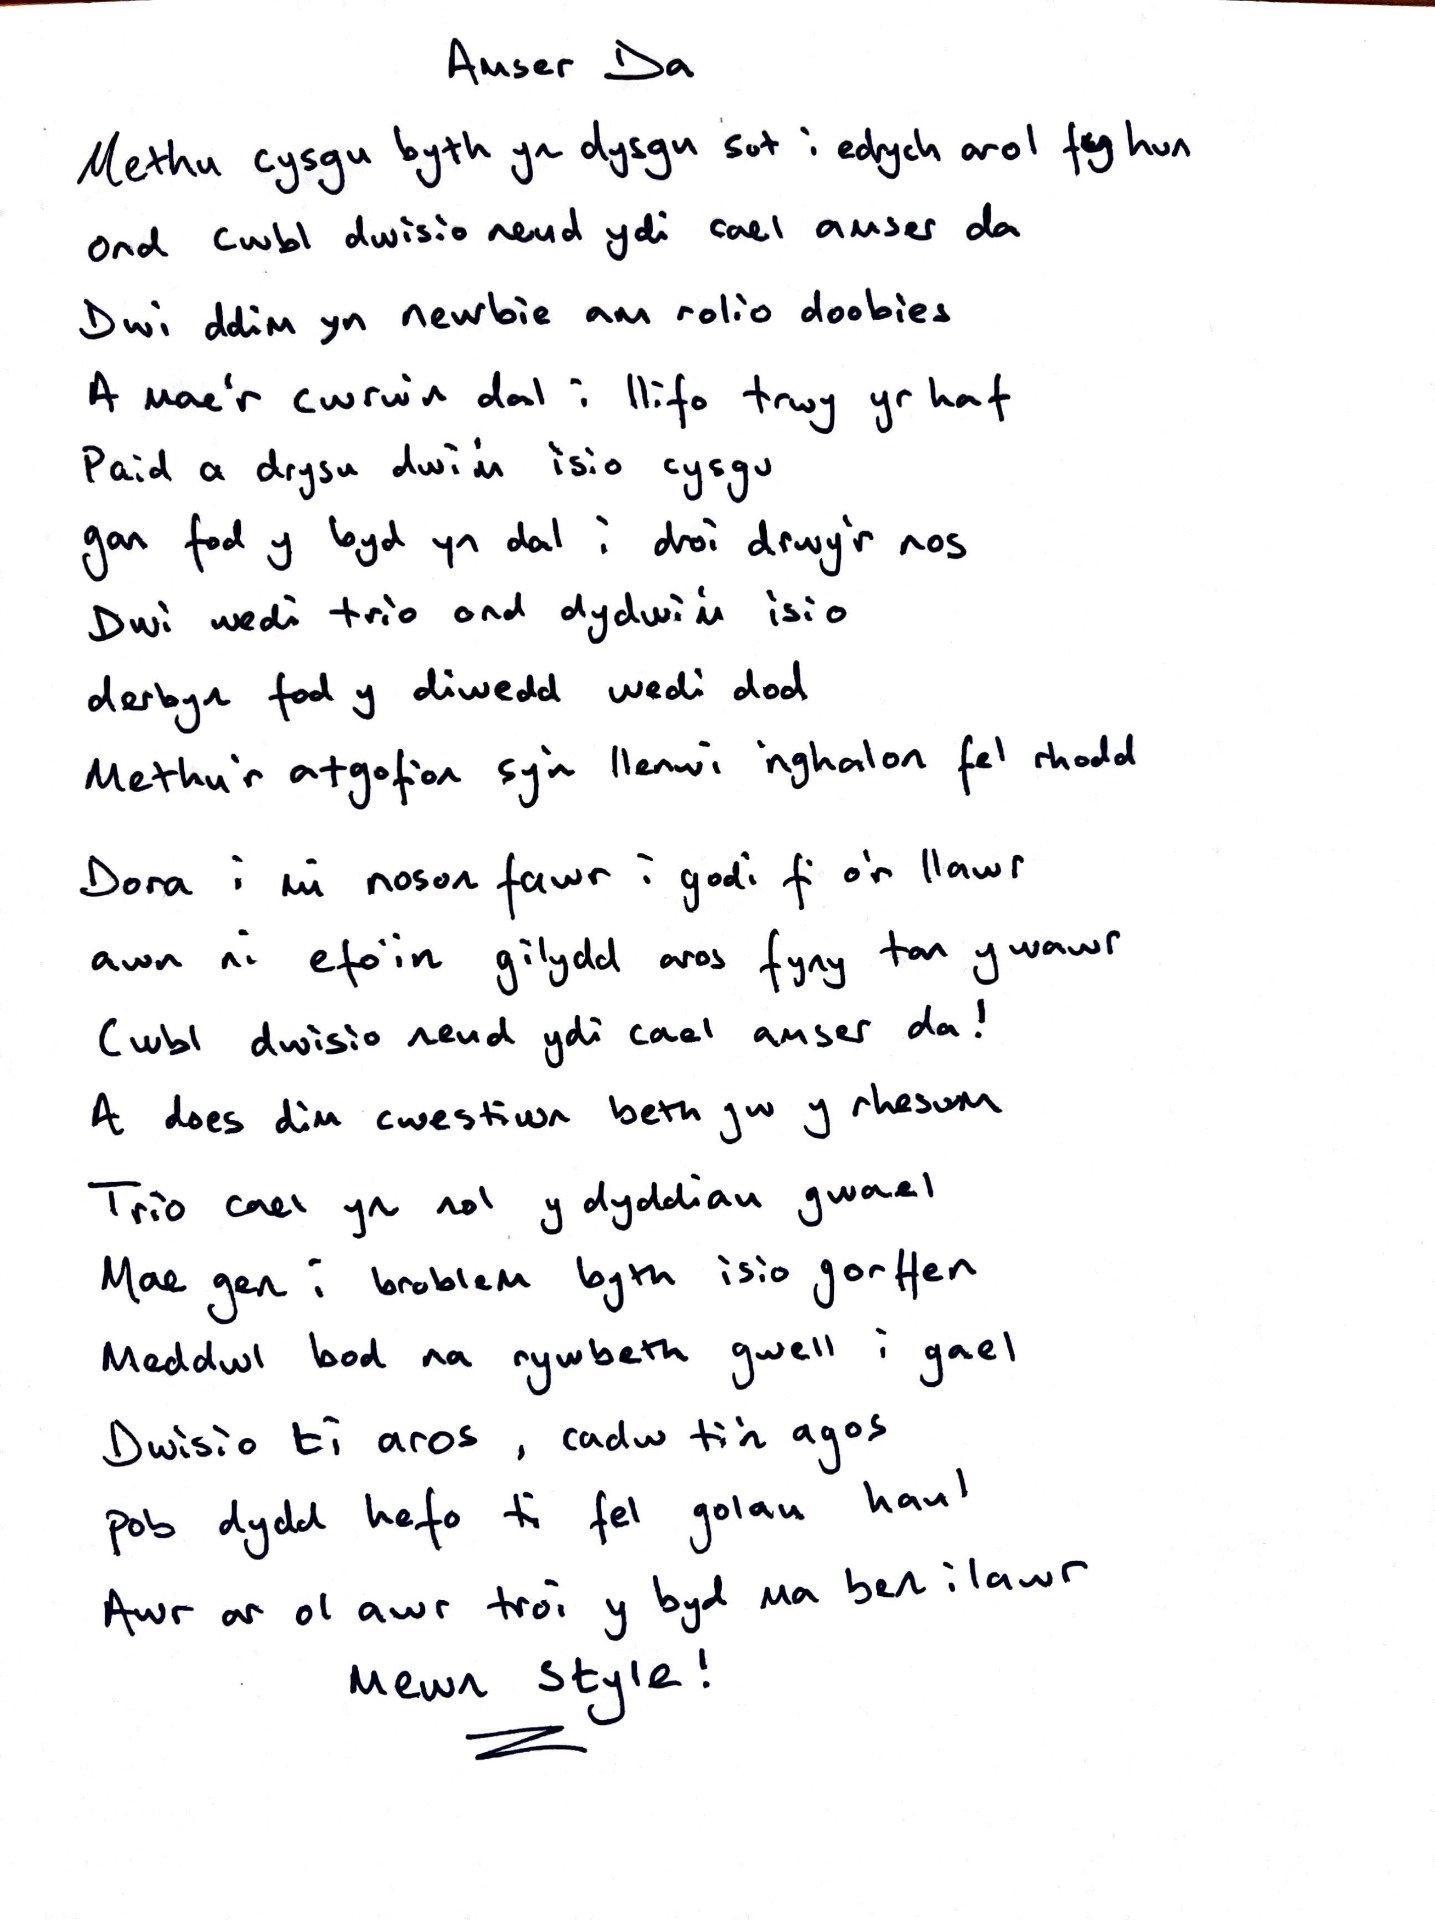 Amser Da
Methu cysgu byth yn dysgu sut i edrych arol fy hun
ond cwbl dwisio neud ydi cael amser da
Dwi ddim yn newbie am rolio doobies
A mae'r cwrw'n dal i llifo trwy yr haf
Paid a drysu dwi'm isio cysgu
gan fod y byd yn dal i droi drwy'r nos
Dwi wedi trio ond dydwi'm isio
derbyn fod y diwedd wedi dod
Methu'r atgofion sy'n llenwi 'nghalon fel rhodd
Dora i mi noson fawr i godi fi o'r llawr
awn ni efo'in gilydd aros fyny tan y wawr
Cwbl dwisio neud ydi cael amser da!
A does dim cwestiwn beth yw y rheswm
Trio cael yn nol y dyddiau gwael
Mae gen i broblem byth isio gorffen
Meddwl bod na rywbeth gwell i gael
Dwisio ti aros, cadw ti'n agos
Pob dydd hefo ti fel golau haul
Awr ar ol awr troi y byd ma ben i lawr
Mewn Style!